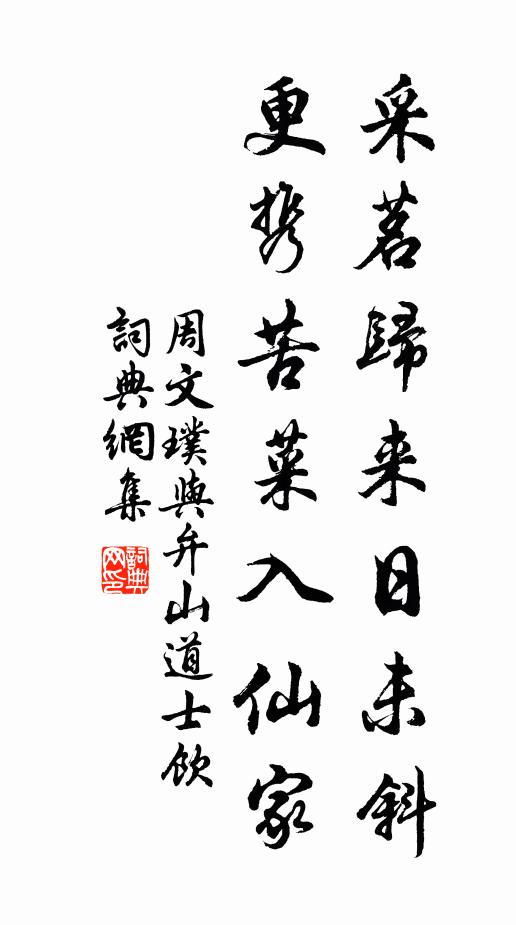 采茗歸来日未斜
更携苦菜入仙家
周文璞與弁山道士飲
詞典網集
詞典网印